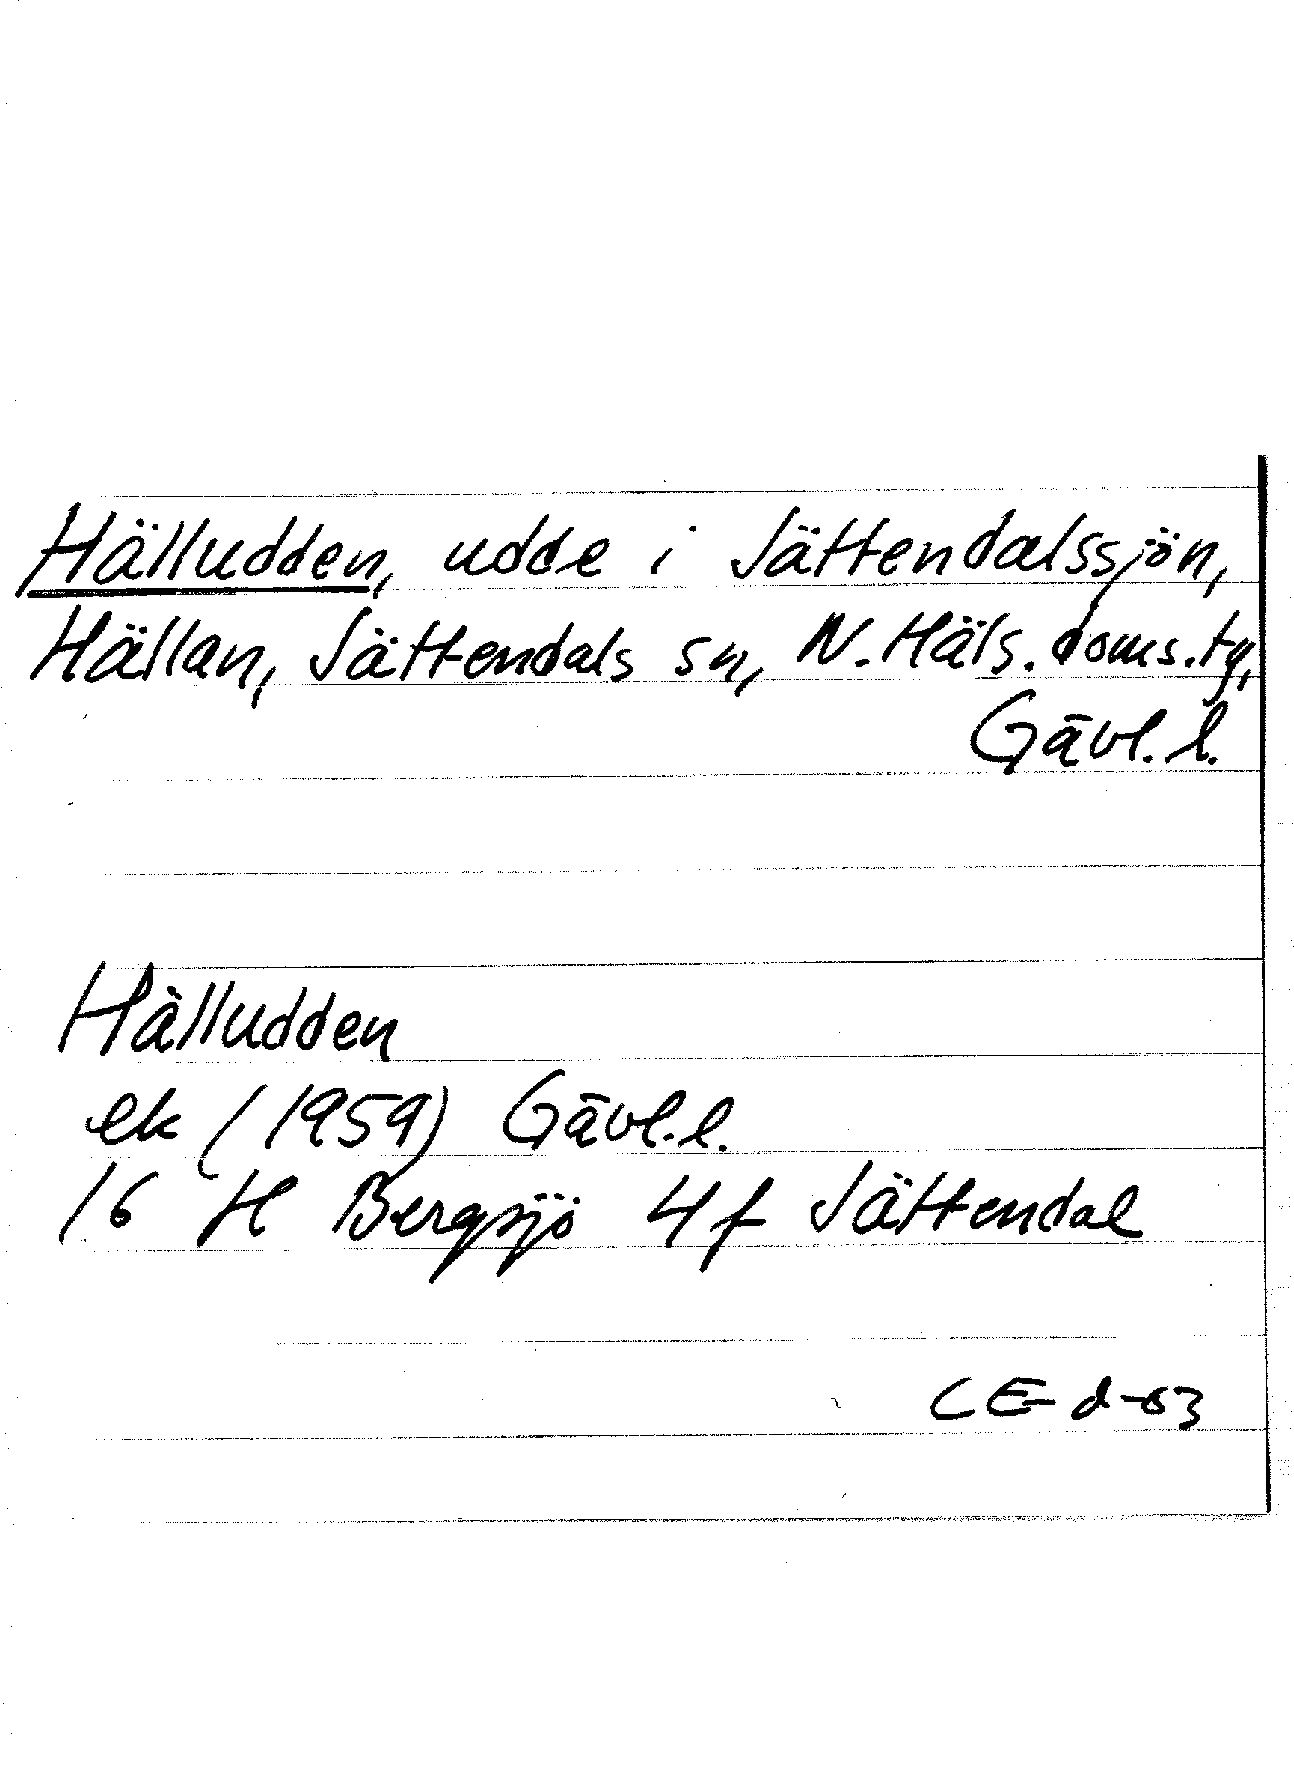 Hälludden, udde i Jättendalssjön,
Hällan, Jättendals sn, N. Häls. doms. tg,
Gävl. l.
Hälludden
ek (1959) Gävl. l.
16 H Bergsjö 4 f Jättendal
CE-d-63